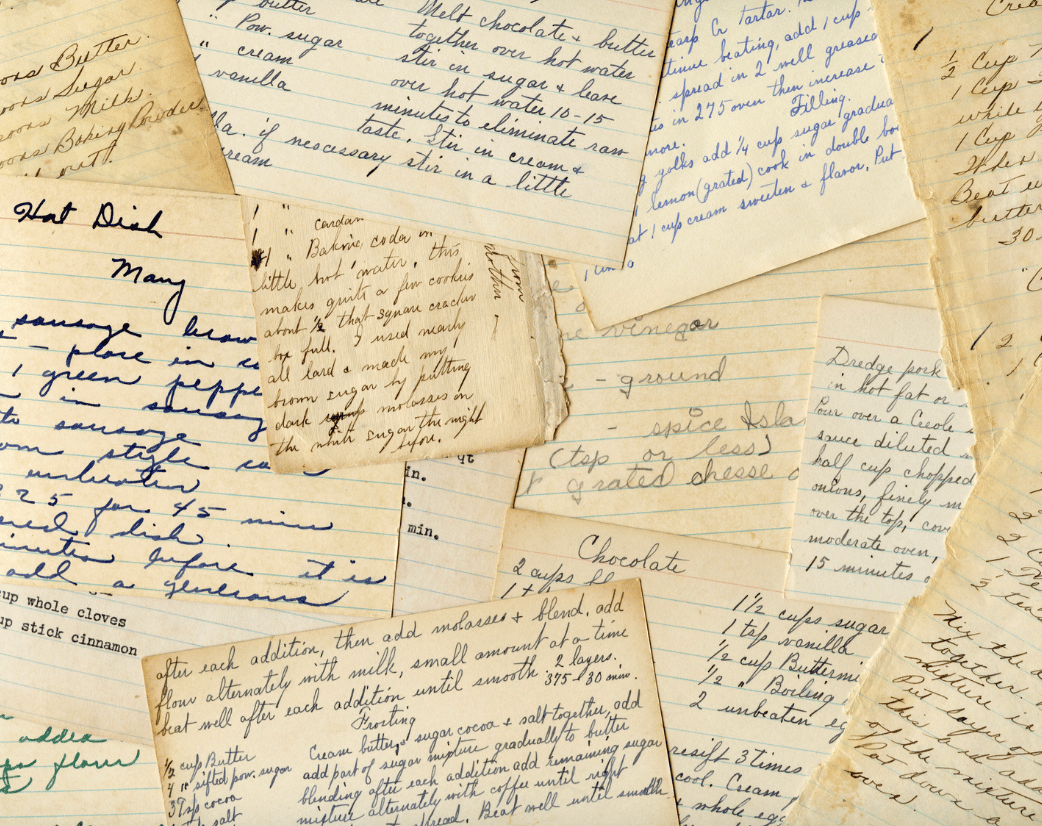 oons Butter.
oons Sugar.
oons Milk.
oons Baking Powder
butter
" Pow. sugar
" cream
vanilla
Melt chocolate & butter
together over hot water
stir in sugar & leave
over hot water 10-15
minutes to eliminate raw
taste. Stir in cream &
if nescessary stir in a little
ream
Cr Tartar.
tinue beating, add 1 cup
spread in 2 well greased
in 275 oven then increase
more.
Filling.
yolks add 1/4 cup sugar gradua
lemon (grated) cook in double bo
at 1 cup cream sweeten & flavor. Put
Crea
1
1/2 Cup
1 Cup
white
1 Cup
When
Beat
butter
30
1 2
Hot Dish
Mary
sausage brow
- place in
1 green peppe
in sausag
sausage
style
25 for 45 min
dish.
minutes before it is
add a generous
1 "
1 " Baking soda in
little hot water, this
makes quite a few cookies
about 1/2 that square cracker
box full. I used nearly
all lard & made my
brown sugar by putting
dark molasses in
the white sugar the night
before.
from
vinegar
- ground
- spice Isla
(tsp or less)
grated cheese
Dredge pork
in hot fat or
Pour over a Creole
sauce diluted
half cup chopped
onions, finely
over the top,
moderate oven,
15 minutes
in.
min.
cup whole cloves
up stick cinnamon
added
flour
Chocolate
2 cups
1 1/2 cups sugar
1 tsp vanilla
1/2 cup Buttermi
1/2 " Boiling
2 unbeaten eg
resift 3 times
cool. Cream
whole egg
after each addition, then add molasses & blend, add
flour alternately with milk, small amount at a time
beat well after each addition until smooth 2 layers.
375 - 30 min.
Frosting
1/2 cup Butter
4 " sifted pow. sugar
3 Tsp cocoa
salt
Cream butter, sugar cocoa & salt together, add
add part of sugar mixture gradually to butter
blending after each addition add remaining sugar
mixture alternately with coffee until right
spread. Beat well until smooth
2
2
1
Mix the
together.
mixture in
Put layer of
this and add
of the mixture
Pat down
oven.